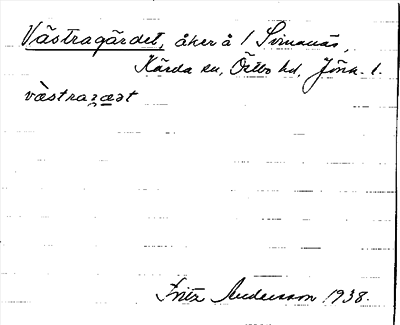 Västragärdet, åker å 1 Svinanäs,
Kärda sn, Östbo hd, Jönk. l.
västraʒæət
Fritz Andersson 1938.